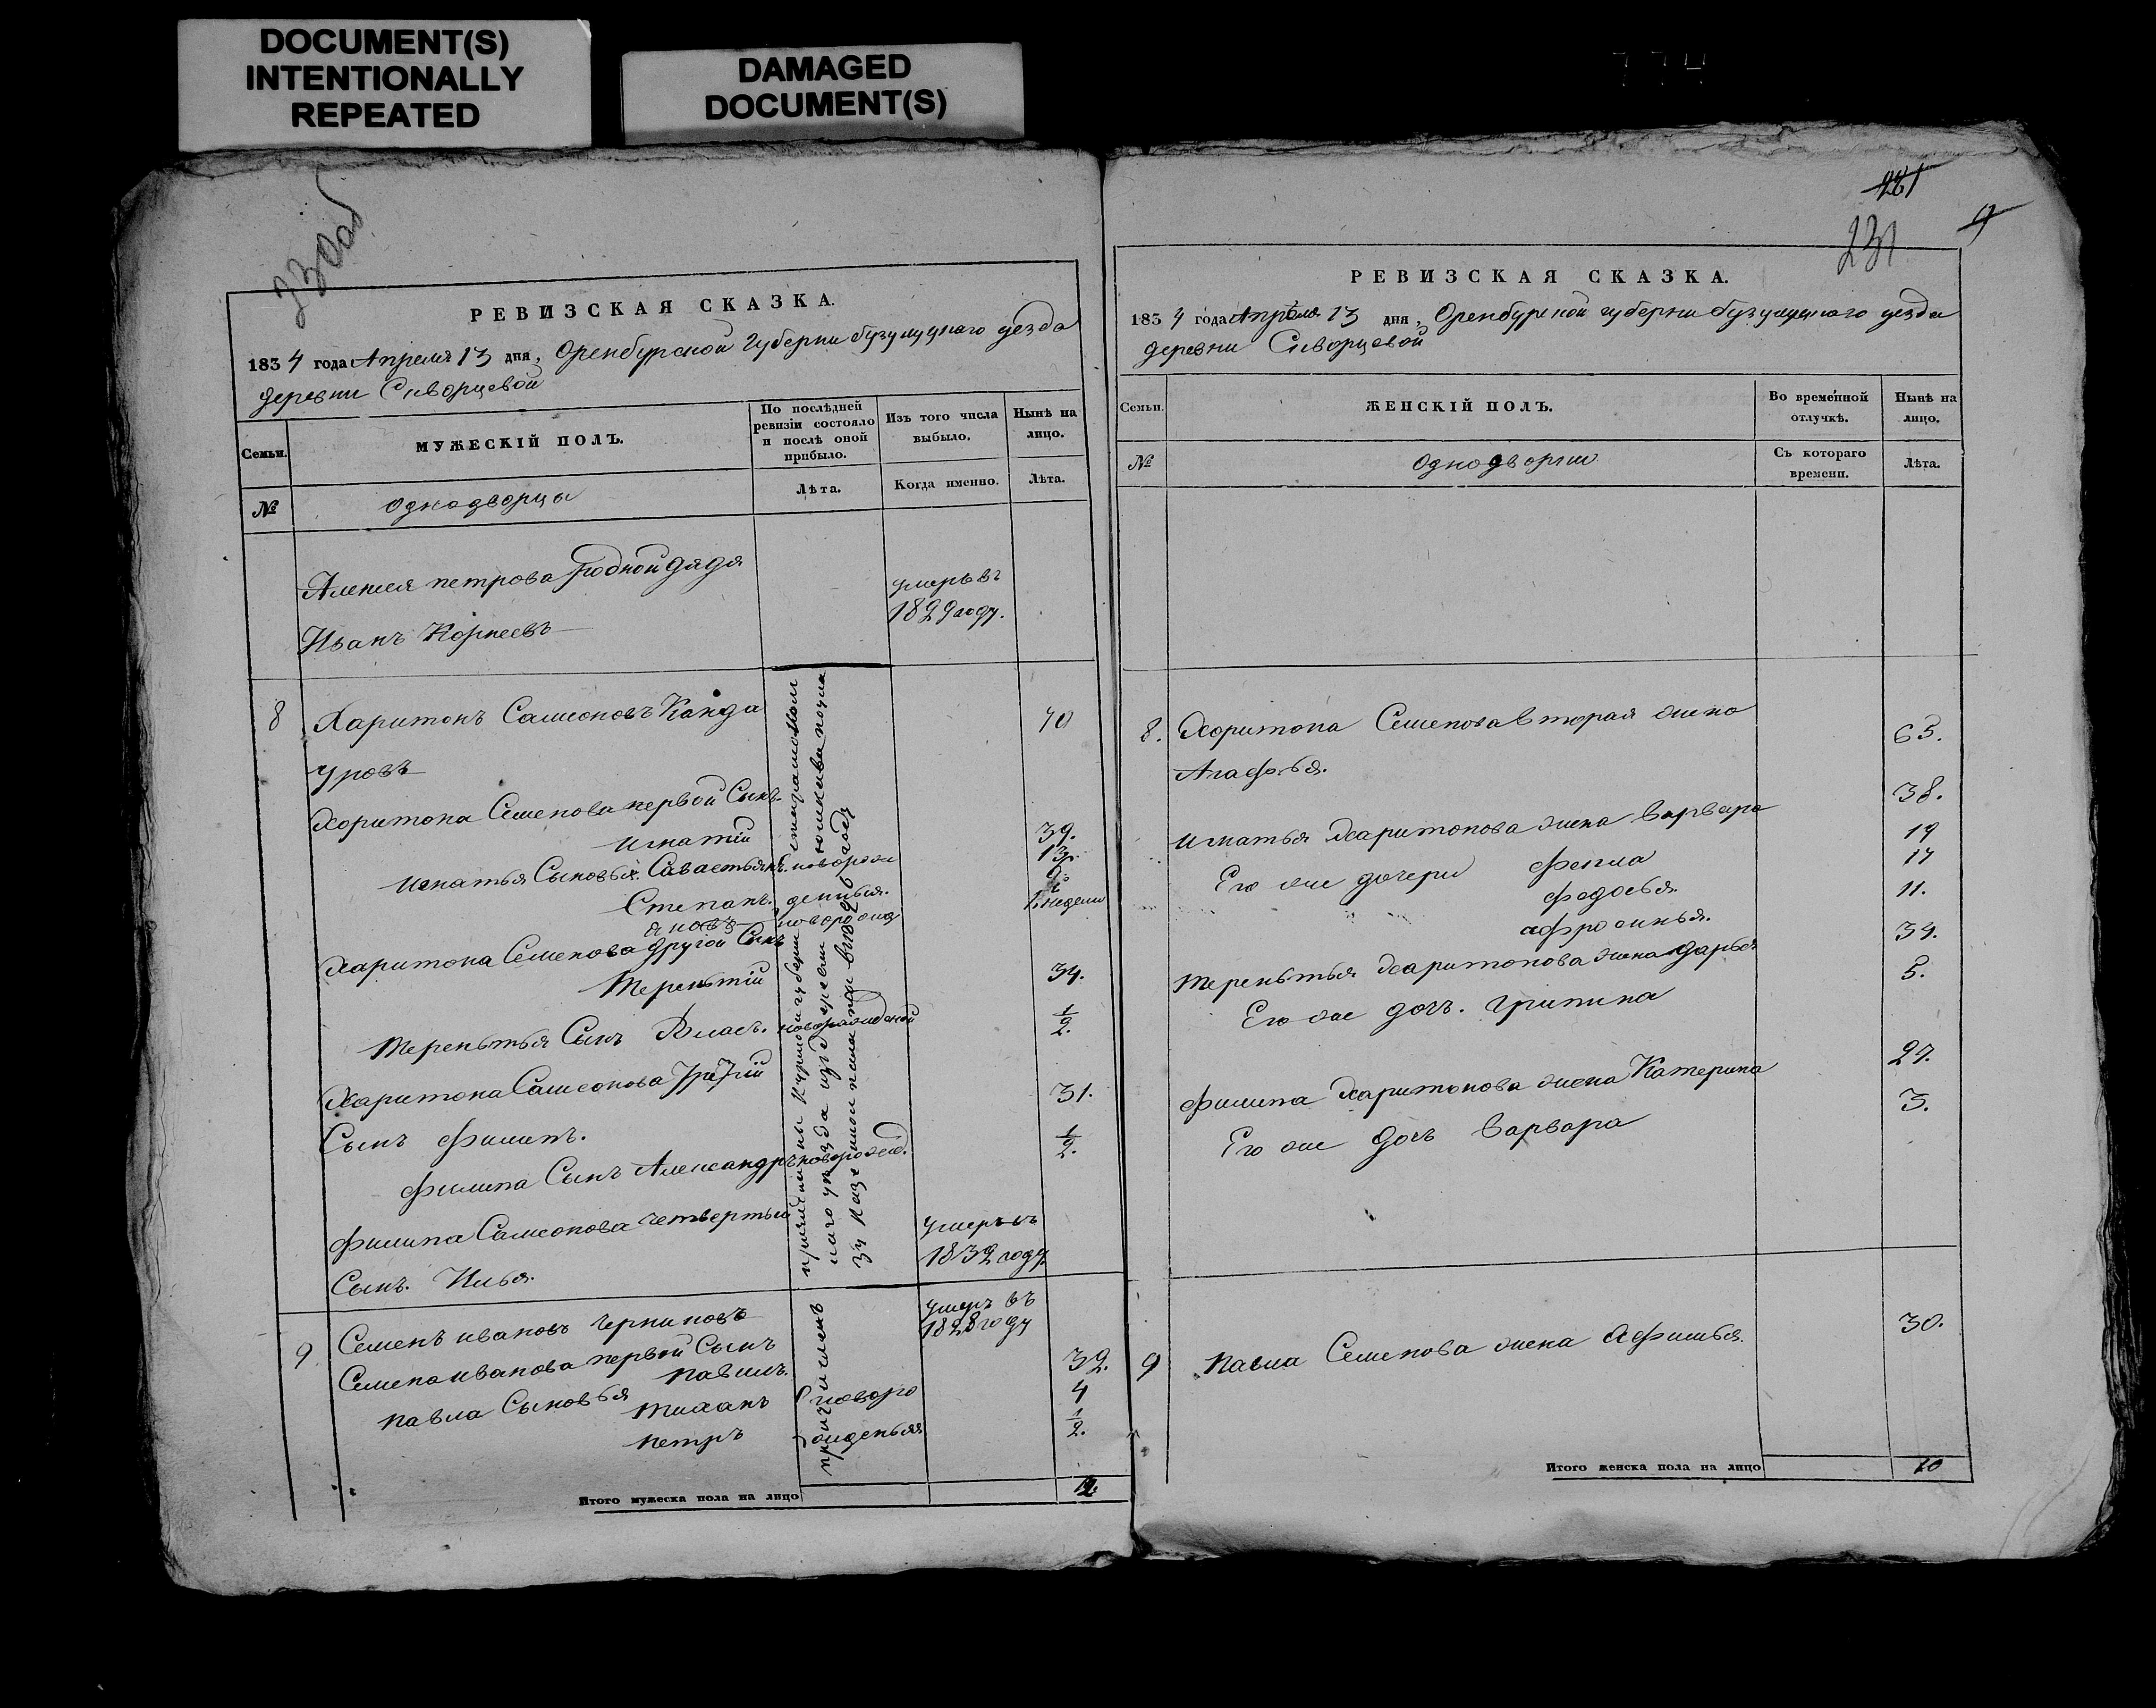 DOCUMENT(S)
INTENTIONALLY
REPEATED
DAMAGED
DOCUMENT(S)
774
230об
РЕВИЗСКАЯ СКАЗКА.
1834 года Апреля 13 дня, Оренбурской Губерни бузулуцкаго уезда
деревни Скворцевой
Семьи.
МУЖЕСКІЙ ПОЛЪ.
По послѣдней
ревизіи состояло
и послѣ оной
прибыло.
Изъ того числа
выбыло.
Нынѣ на
лицо.
№
однодворцы
Лѣта.
Когда именно.
Лѣта.
Алексея петрова родной дядя
Иванъ Корнеевъ
умеръ въ
1829 году.
8
Харитонъ Самсоновъ Канда
уровъ
70
Харитона Семенова первой Сынъ
игнатій
39.
игнатья Сыновья. Савастьянъ. новорож
13.
Степанъ. денныя.
9.
яковъ новорожд
1. недели
Харитона Семенова другой Сынъ
Терентій
34.
Терентья Сынъ Власъ. новорожденой
1/2.
Харитона Самсонова Третій
Сынъ филипъ.
31.
филипа Сынъ Александръ новорожд.
1/2.
филипа Самсонова четвертый
Сынъ. Илья.
умеръ въ
1832 году
причислены Курской губерни
наго уезда изъ деревни
за казенной палаты въ 1826 годе
9
Семенъ ивановъ Черниковъ
умеръ въ
1828 году
Семена иванова первой Сынъ
павилъ.
32.
павла Сыновья тиханъ новоро
4
петръ жденыя
1/2.
причисленъ
Итого мужеска пола на лицо
12.
221
9
231
РЕВИЗСКАЯ СКАЗКА.
1834 года Апреля 13 дня, Оренбурской губерни бузулуцкаго уезда
деревни Скворцевой
Семьи.
ЖЕНСКІЙ ПОЛЪ.
Во временной
отлучкѣ.
Нынѣ на
лицо.
№
Однодворки
Съ котораго
времени.
Лѣта.
8.
Харитона Семенова вторая жена
Агафья.
63.
игнатья Харитонова жена варвара
38.
Его же дочери фекла
19
федосья.
14
афросинья.
11.
Терентья Харитонова жена дарья
34.
Его же дочь. грипина
5.
филипа Харитонова жена Катерина
27.
Его же дочь варвара
3.
9
павла Семенова жена Афимья.
30.
Итого женска пола на лицо
10